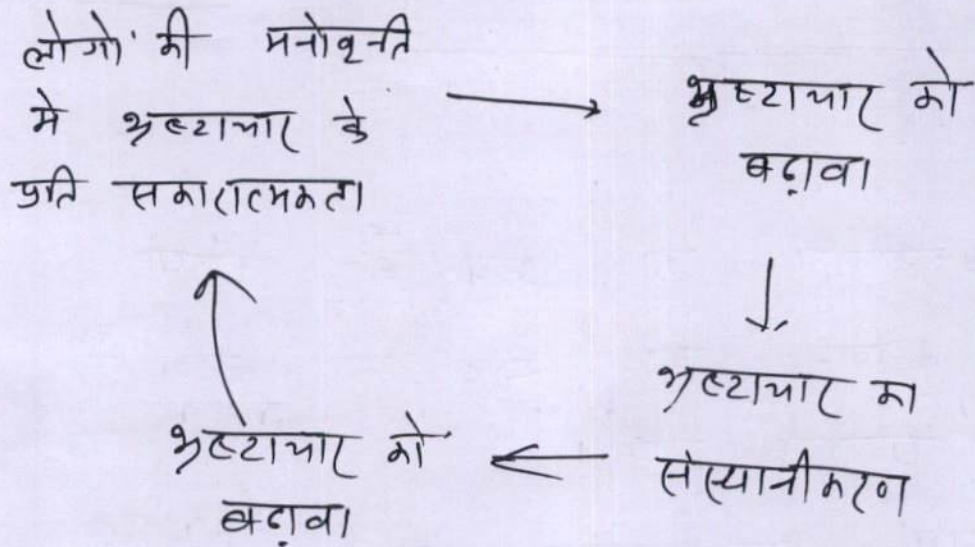 लोगो की मनोवृत्ति
मे भ्रष्टाचार के
प्रति सकारात्मकता
भ्रष्टाचार को
बढ़ावा
भ्रष्टाचार का
संस्थानीकरण
भ्रष्टाचार को
बढ़ावा